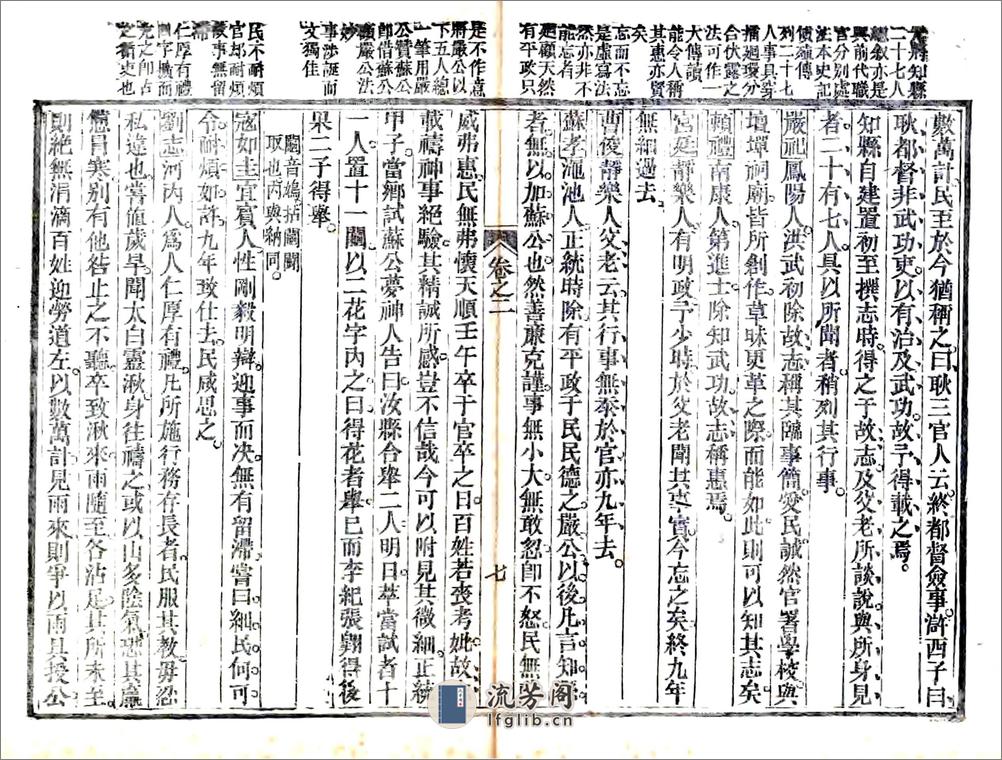 二十七人
總敘亦是
與前代職
官分別處
法本史記
列二十七
合伏露之
法可作一
大傳讀
能令人稱
其惠亦賢
矣
忘而不忘
是虛寫法
然亦非不
能忘者
廻顧天然
有平政只
數萬計民至於今猶稱之曰耿三官人云終都督僉事滸西子曰
耿都督非武功吏以有治及武功故予得載之焉。
知縣自建置初至撰志時得之于故志及父老所談說與所身見
者二十有七人具以所聞者稍列其行事。
嚴祀鳳陽人洪武初除故志稱其臨事簡愛民誠然官署學校與
壇壝祠廟皆所創作草昧更革之際而能如此則可以知其志矣
賴禮南康人第進士除知武功故志稱惠焉。
宮延靜樂人有明政予少時於父老聞其事實今忘之矣終九年
無細過去。
曹俊靜樂人父老云其行事無忝於官亦九年去。
蘇孝澠池人正統時除有平政于民民德之嚴公以後凡言知縣
者無以加蘇公也然善廉克謹事無小大無敢忽卽不怒民無弗
卷之二
七
是不作意
將嚴公以
下五人總
一筆用嚴
公贊蘇公
即借蘇公
贊嚴公法
妙
事涉誕而
文獨佳
民不耐煩
官却耐煩
故事無留
滯
仁厚有禮
充之即古
之循吏也
威弗惠民無弗懷天順壬午卒于官卒之日百姓若喪考妣故志
載禱神事絕驗其精誠所感豈不信哉今可以附見其微細正統
甲子當鄉試蘇公夢神人告曰汝縣合舉二人明日萃當試者十
一人置十一鬮以二花字內之曰得花者舉已而李紀張翱得後
果二子得舉。
鬮音鳩拈鬮鬭
取也內與納同。
寇如圭宜賓人性剛毅明辯迎事而决無有留滯嘗曰細民何可
令耐煩如許九年致仕去民咸思之。
劉志河內人為人仁厚有禮凡所施行務存長者民服其教毋忍
私違也嘗值歲旱聞太白靈湫身往禱之或以山多陰氣恐其羸
憊冒寒別有他咎止之不聽卒致湫來雨隨至各沾足其所未至
則絕無涓滴百姓迎勞道左以數萬計見雨來則爭以雨具授公
流芳阁
lfglib.cn